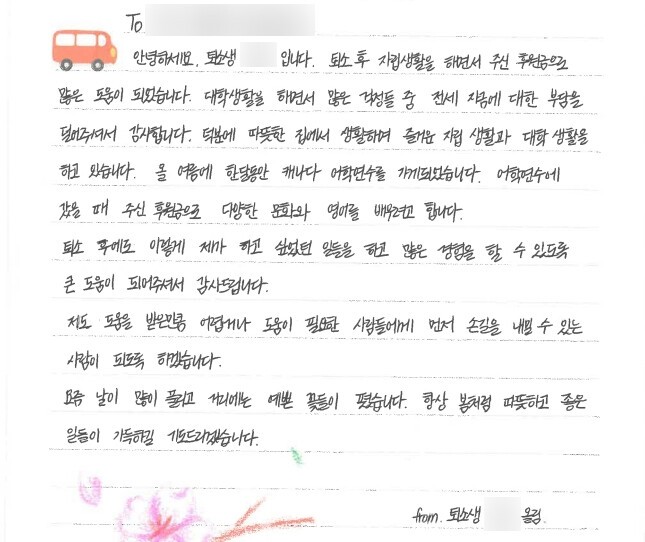 To
안녕하세요, 퇴소생 입니다. 퇴소 후 자립생활을 하면서 주신 후원금으로
많은 도움이 되었습니다. 대학생활을 하면서 많은 걱정들 중 전세 자금에 대한 부담을
덜어주셔서 감사합니다. 덕분에 따뜻한 집에서 생활하며 즐거운 자립 생활과 대학 생활을
하고 있습니다. 올 여름에 한달동안 캐나다 어학연수를 가게되었습니다. 어학연수에
갔을 때 주신 후원금으로 다양한 문화와 영어를 배우려고 합니다.
퇴소 후에도 이렇게 제가 하고 싶었던 일들을 하고 많은 경험을 할 수 있도록
큰 도움이 되어주셔서 감사드립니다.
저도 도움을 받은만큼 어렵거나 도움이 필요한 사람들에게 먼저 손길을 내밀 수 있는
사람이 되도록 하겠습니다.
요즘 날이 많이 풀리고 거리에는 예쁜 꽃들이 폈습니다. 항상 봄처럼 따뜻하고 좋은
일들이 가득하길 기도드리겠습니다.
from. 퇴소생 올림.